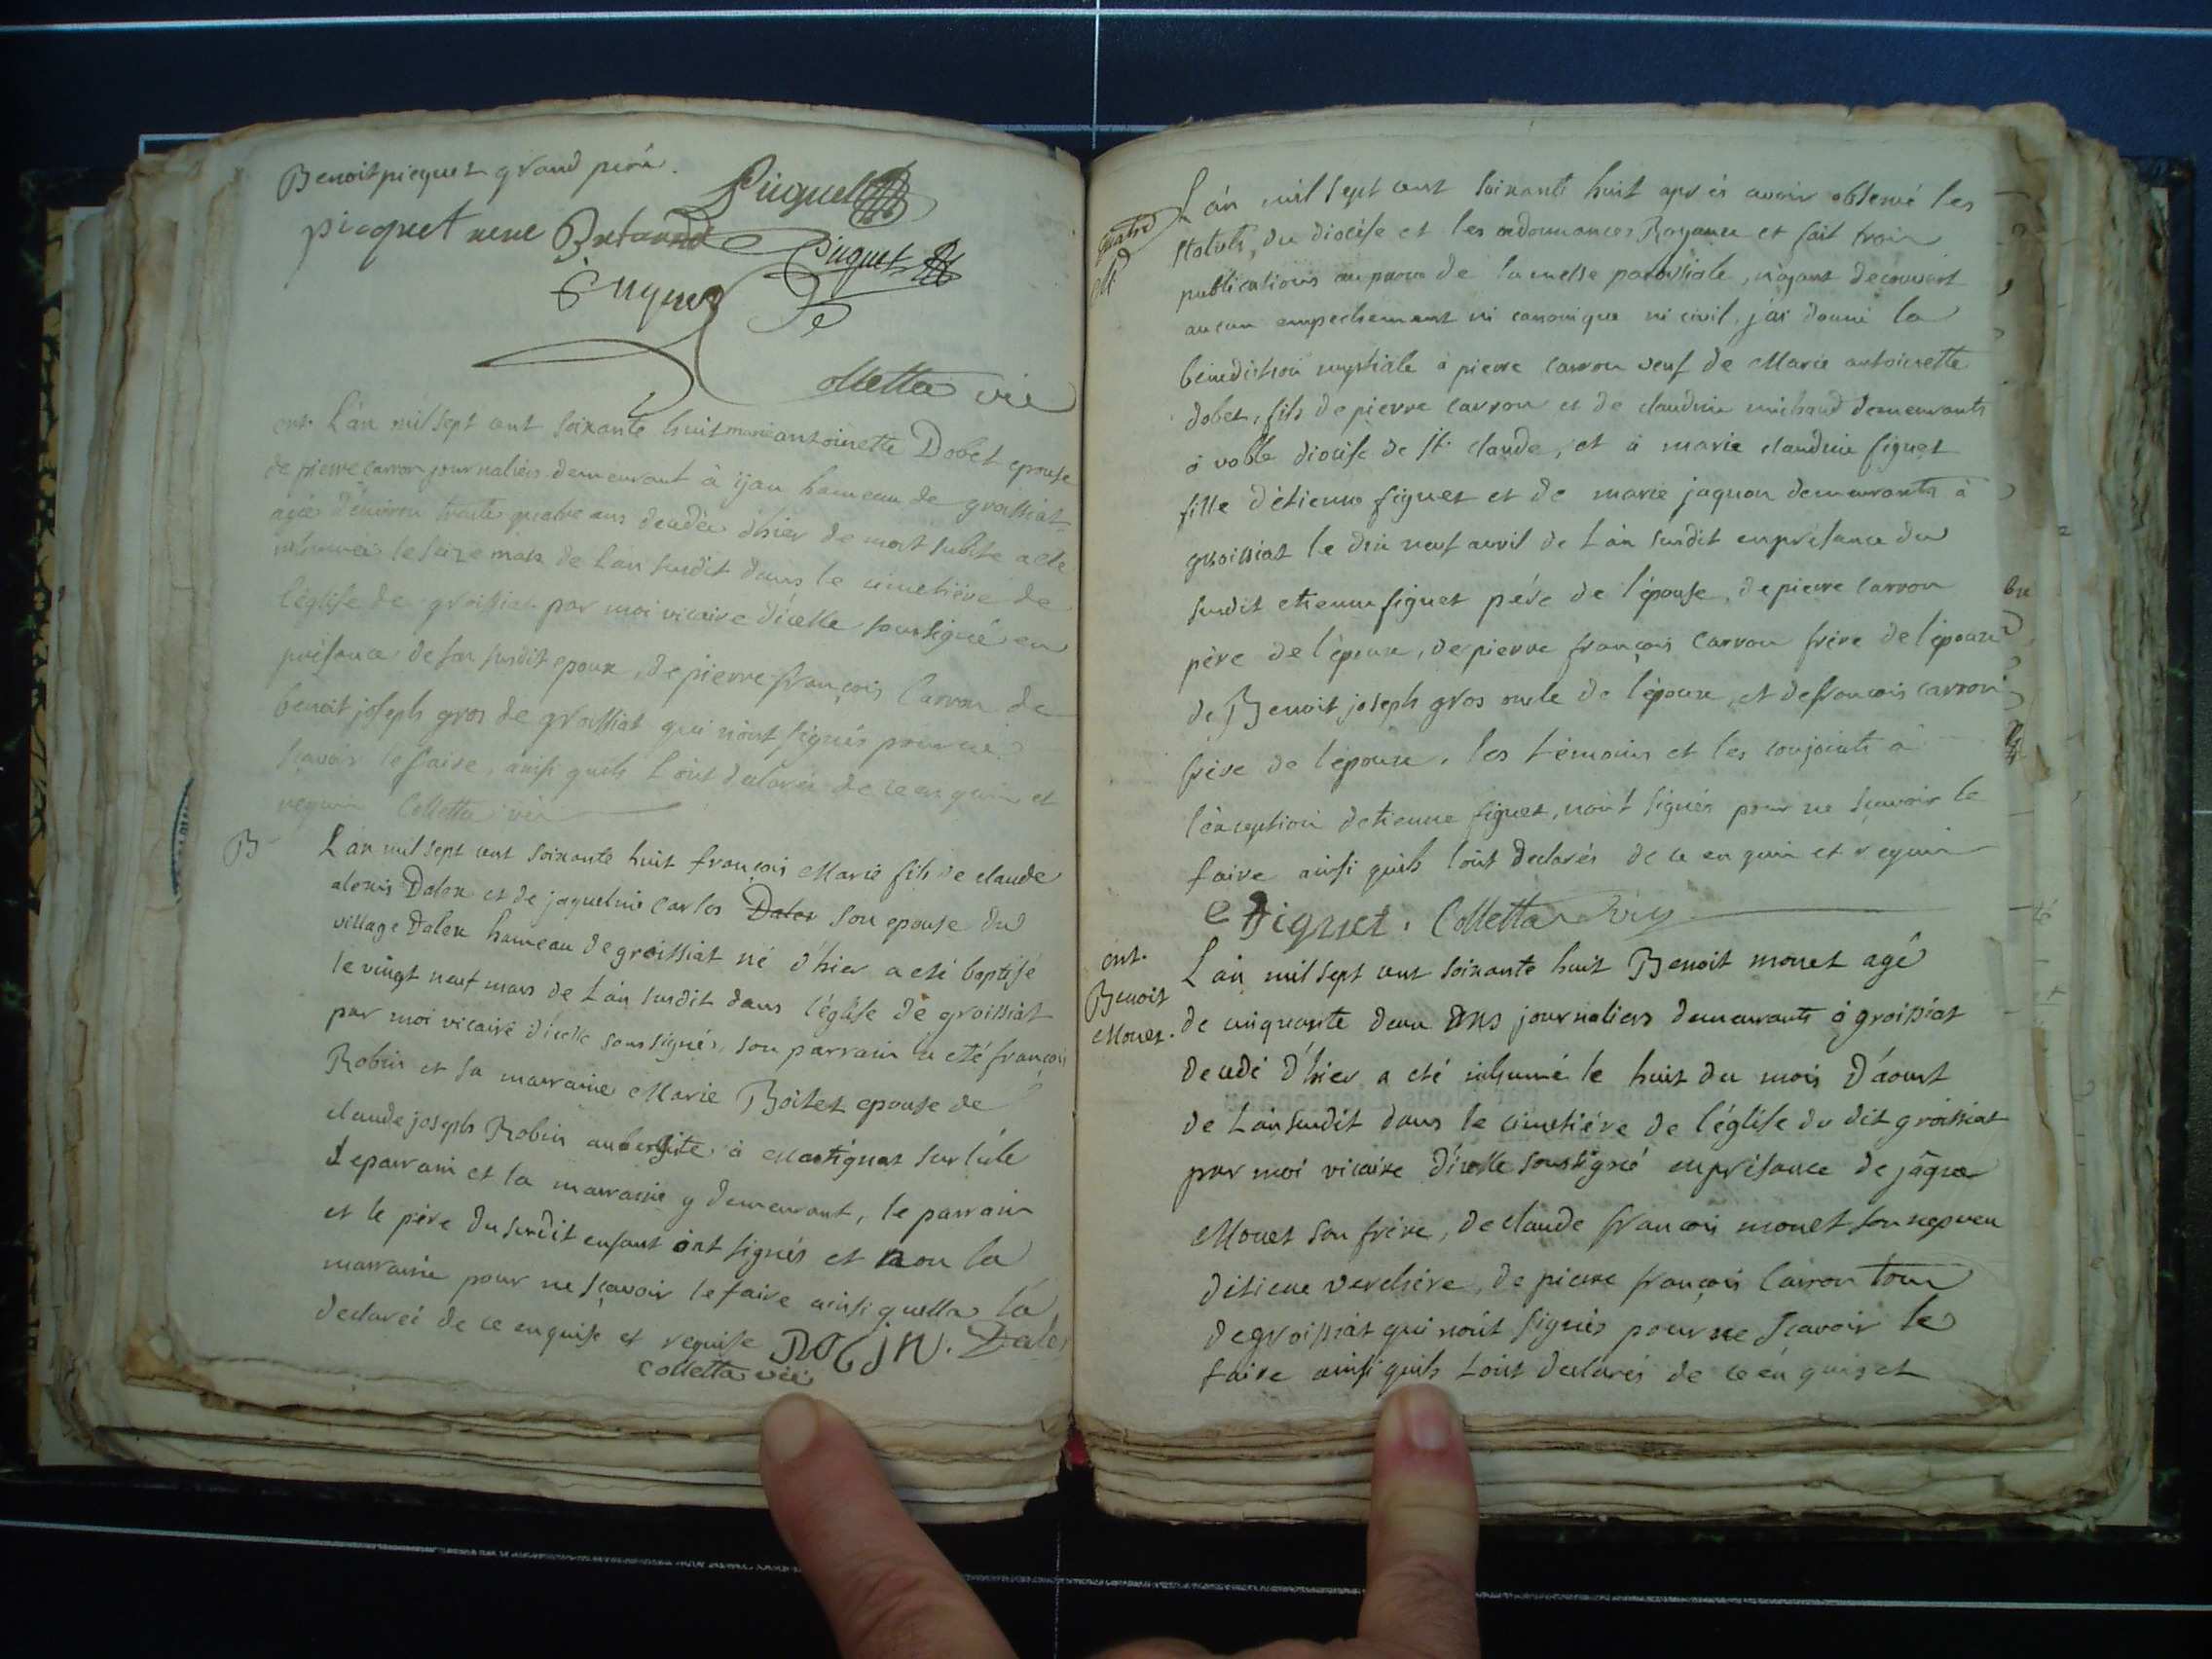 Benoit picquet grand pere.
Picquet
picquet neveu
Picquet
Colletta vic
ent. L'an mil sept cent soixante huit marie antoinette Dobet epouse
de pierre carron journaliers demeurant à ijan hameau de groissiat
agée d'environ trente quatre ans decedée d'hier de mort subite a eté
inhumée le seize mars de L'an susdit dans le cimetière de
l'église de groissiat par moi vicaire d'icelle soussigné en
présance de son susdit epoux, de pierre françois Carron de
benoit joseph gros de groissiat qui n'ont signés pour ne
sçavoir le faire, ainsi quils L'ont declarés de ce enquis et
requis Colletta vic
B
L'an mil sept cent soixante huit françois Marie fils de claude
alexis Dalex et de jaqueline carlos Dalex son epouse du
village Dalex hameau de groissiat né d'hier a eté baptisé
le vingt neuf mars de L'an susdit dans l'église de groissiat
par moi vicaire d'icelle soussignés, son parrain a eté françois
Robin et sa marraine Marie Boitet epouse de
claude joseph Robin aubergiste à Martignat
Le parrain et la marraine y demeurant, le parrain
et le père du susdit enfant ont signés et non la
marraine pour ne sçavoir le faire ainsi quella la
declaréé de ce enquise et requise RObiN. Dalex
Colletta vic
L'an mil sept cent soixante huit après avoir observé les
statuts, du diocése et les ordonnances Royaux et fait trois
publications au prone de la messe paroissiale, n'ayant decouvert
aucun empechement ni canonique ni civil, j'ai donné la
bénédiction nuptiale à pierre carron veuf de Marie antoinette
dobet, fils de pierre carron et de claudine michaud demeurants
à volle diocése de St. claude, et à marie claudine figuet
fille d'étienne figuet et de marie jaquon demeurants à
groissiat le dix neuf avril de L'an susdit en présance du
susdit etienne figuet père de l'épouse, de pierre carron
père de l'époux, de pierre françois Carron frère de l'époux
de Benoit joseph gros oncle de l'époux, et de francois carron
frère de l'époux. les témoins et les conjoints à
l'exception detienne figuet, n'ont signés pour ne sçavoir le
faire ainsi quils l'ont declarés de ce enquis et requis
e figuet. Colletta vic
ent.
Benoit
Monet.
L'an mil sept cent soixante huit Benoit monet agé
de cinquante deux ans journaliers demeurants à groissiat
decedé d'hier a eté inhumé le huit du mois D'aoust
de L'an susdit dans le cimetière de l'église du dit groissiat
par moi vicaire d'icelle soussigné en présance de jâque
Monet son frère, de claude françois monet son nepveu
d'etiene verchere, de pierre françois Carron tous
de groissiat qui n'ont signés pour ne sçavoir le
faire ainsi quils L'ont declarés de ce en quis et